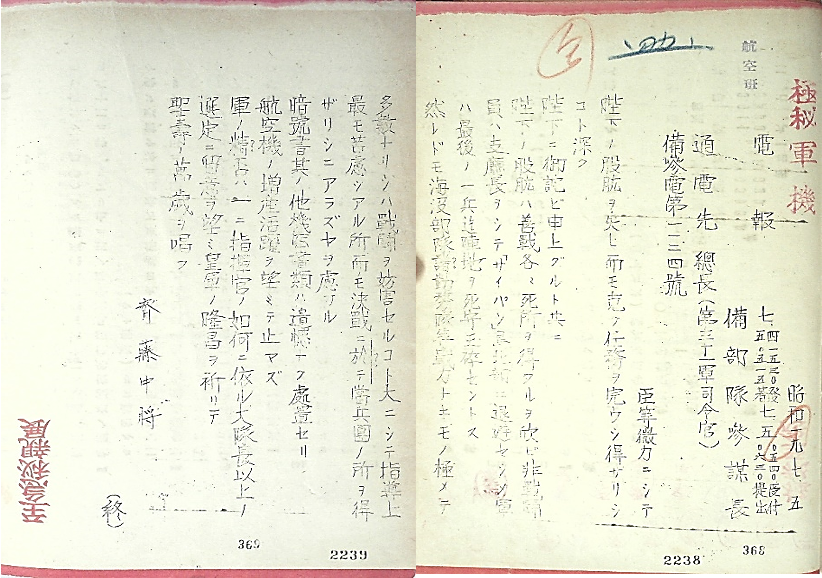 極秘
軍機
航空班
電報
昭和一九七五
備部隊參謀長
通電先 總長(第三十一軍司令官)
備參電第一一二四號
臣等微力ニシテ
陛下ノ股肱ヲ失ヒ而モ克ク任務ヲ完ウシ得ザリシ
コト深ク
陛下ニ御詫ビ申上グルト共ニ
陛下ノ股肱ハ善戰各〻死所ヲ得タルヲ欣ビ非戰鬪
員ハ支廳長ヲシテサイパン島北部ニ退避セシメ軍
ハ最後ノ一兵迄陣地ヲ死守玉碎セントス
然レドモ海沒部隊
トモノ極メテ
368
2238
多數ナリシハ戰鬪ヲ妨害セルコト大ニシテ指導上
最モ苦慮シアル所而モ決戰ニ於テ當兵團ノ所ヲ得
ザリシニアラズヤヲ慮ル
暗號書其ノ他機密書類ハ遺憾ナク處置セリ
航空機ノ增產活躍ヲ望ミテ止マズ
軍ノ精否ハ一ニ指揮官ノ如何ニ依ル大隊長以上ノ
選定ニ留意ヲ望ミ皇軍ノ隆昌ヲ祈リテ
聖壽ノ萬歲ヲ唱フ
齊藤中將
(終)
369
2239